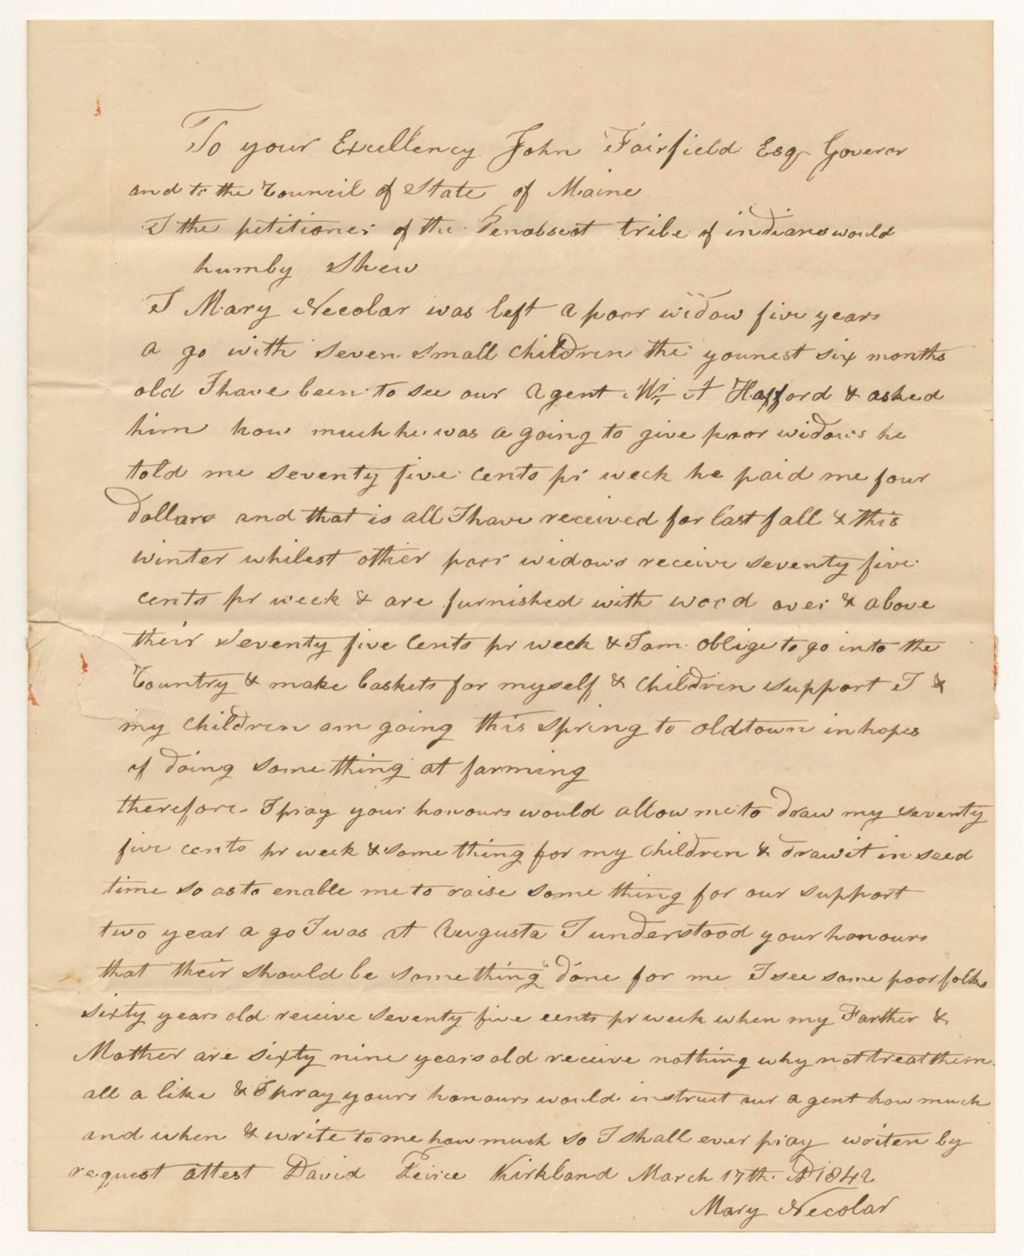 To your Excellency John Fairfield Esq Goveror
and to the Council of State of Maine
I the petitioner of the Penobscot tribe of indians would
humby Shew
I Mary Necolar was left a poor widow five years
a go with seven small children the younest six months
old I have been to see our Agent Mr. A Hafford & asked
him how much he was a going to give poor widows he
told me seventy five cents pr week he paid me four
Dollars and that is all I have received for last fall & this
winter whilest other poor widows receive seventy five
cents pr week & are furnished with wood over & above
their Seventy five Cents pr week & I am oblige to go into the
Country & make baskets for myself & children support I &
my children am going this spring to oldtown in hopes
of doing some thing at farming
therefore I pray your honours would allow me to draw my seventy
five cents pr week & some thing for my children & draw it in seed
time so as to enable me to raise some thing for our support
two year a go I was at Augusta I understood your honours
that their should be something done for me I see some poor folks
sixty years old receive seventy five cents pr week when my Farther &
Mother are sixty nine years old receive nothing why not treat them
all a like & I pray yours honours would instruct our agent how much
and when & write to me how much so I shall ever pray writen by
request attest David Peirce Kirkland March 17th AD 1842
Mary Necolar